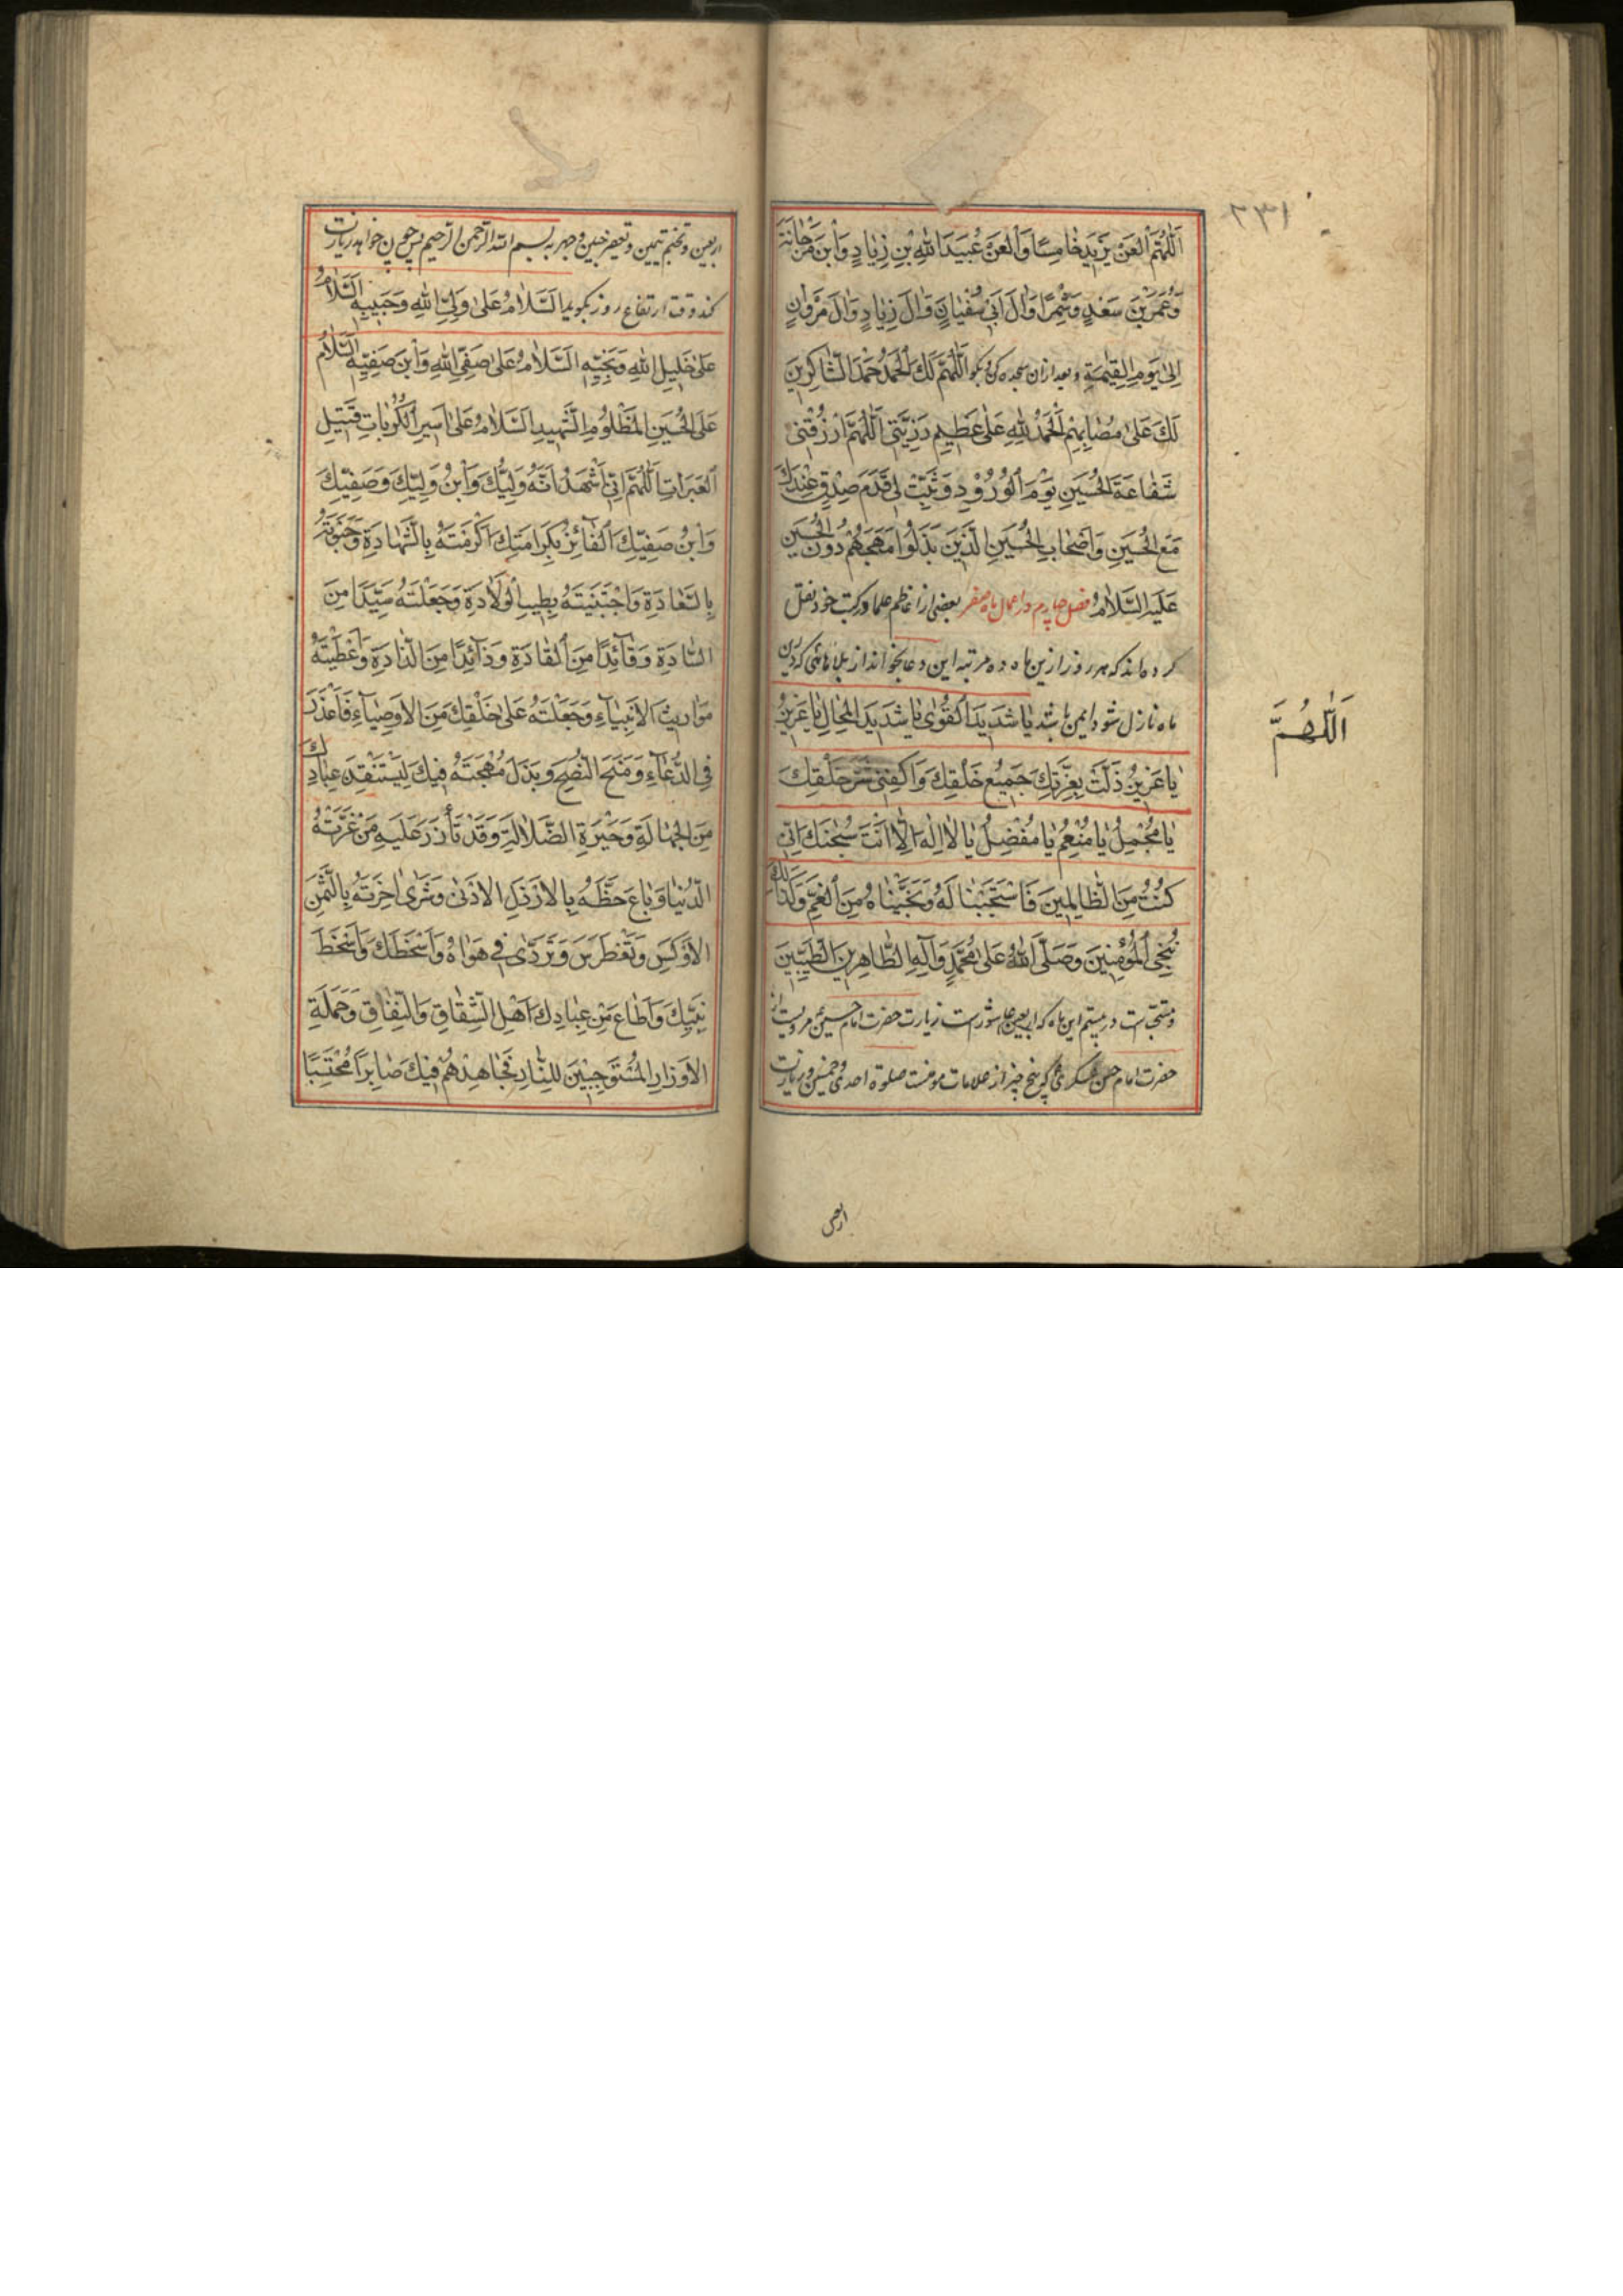 ٢٣١
اَللّٰهُمَّ الْعَنْ يَزِيدَ خٰامِسًا وَالْعَنْ عُبَيْدَ اللّٰهِ بْنِ زِيٰادٍ وَابْنَ مَرْجٰانَةَ
وَعُمَرَ بْنَ سَعْدٍ وَشِمْرًا وَاٰلَ اَبِي سُفْيٰانَ وَاٰلَ زِيٰادٍ وَاٰلَ مَرْوٰانٍ
اِلىٰ يَوْمِ الْقِيٰمَةِ وبعد ازان سجده كن وبكو اَللّٰهُمَّ لَكَ الْحَمْدُ حَمْدَ الشّٰاكِرِينَ
لَكَ عَلىٰ مُصٰابِهِمْ اَلْحَمْدُ لِلّٰهِ عَلىٰ عَظِيمِ رَزِيَّتِي اَللّٰهُمَّ ارْزُقْنِي
شَفٰاعَةَ الْحُسَيْنِ يَوْمَ الْوُرُوْدِ وَثَبِّتْ لِي قَدَمَ صِدْقٍ عِنْدَكَ
مَعَ الْحُسَيْنِ وَاَصْحٰابِ الْحُسَيْنِ الَّذِيْنَ بَذَلُوا مُهَجَهُمْ دُوْنَ الْحُسَيْنِ
عَلَيْهِ السَّلاٰمُ فصل چهارم در اعمال ماه صفر بعضى از اعاظم علما در كتب خود نقل
كرده‌اند كه هر روز ازين ماه ده مرتبه اين دعا بخواند از بلاهائى كه درين
ماه نازل شود ايمن باشد يٰا شَدِيدَ الْقُوىٰ يٰا شَدِيدَ الْمِحٰالِ يٰا عَزِيزُ
يٰا عَزِيزُ ذَلَّتْ بِعِزَّتِكَ جَمِيْعُ خَلْقِكَ وَاكْفِنِي شَرَّ خَلْقِكَ
يٰا مُجْمِلُ يٰا مُنْعِمُ يٰا مُفْضِلُ يٰا لاٰ اِلٰهَ اِلّٰا اَنْتَ سُبْحٰنَكَ اِنِّي
كُنْتُ مِنَ الظّٰالِمِينَ فَاسْتَجَبْنٰا لَهُ وَنَجَّيْنٰاهُ مِنَ الْغَمِّ وَكَذٰلِكَ
نُنْجِي الْمُؤْمِنِينَ وَصَلَّى اللّٰهُ عَلىٰ مُحَمَّدٍ وَاٰلِهِ الطّٰاهِرِينَ الطَّيِّبِينَ
ومستحب است در بيستم اين ماه كه اربعين عاشورست زيارت حضرت امام حسين ع مرويست از
حضرت امام حسن عسكرى ع كه پنج چيز از علامات مؤمنست صلوة احدى وخمسين وزيارت
اَللّٰهُمَّ
اربعين
اربعين وتختم يمين وتعفير جبين وجهر به بسم الله الرحمن الرحيم پس چون خواهد زيارت
كند وقت ارتفاع روز بكويد اَلسَّلاٰمُ عَلىٰ وَلِيِّ اللّٰهِ وَحَبِيبِهِ اَلسَّلاٰمُ
عَلىٰ خَلِيلِ اللّٰهِ وَنَجِيِّهِ اَلسَّلاٰمُ عَلىٰ صَفِيِّ اللّٰهِ وَابْنَ صَفِيِّهِ اَلسَّلاٰمُ
عَلَى الْحُسَيْنِ الْمَظْلُومِ الشَّهِيدِ اَلسَّلاٰمُ عَلىٰ اَسِيرِ الْكُرُبٰاتِ قَتِيلِ
الْعَبَرَاتِ اَللّٰهُمَّ اِنِّي اَشْهَدُ اَنَّهُ وَلِيُّكَ وَابْنُ وَلِيِّكَ وَصَفِيُّكَ
وَابْنُ صَفِيِّكَ الْفٰائِزُ بِكَرَامَتِكَ اَكْرَمْتَهُ بِالشَّهٰادَةِ وَحَبَوْتَهُ
بِالسَّعٰادَةِ وَاجْتَبَيْتَهُ بِطِيبِ الْوِلاٰدَةِ وَجَعَلْتَهُ سَيِّدًا مِنَ
السّٰادَةِ وَقٰآئِدًا مِنَ الْقٰادَةِ وَذٰآئِدًا مِنَ الذّٰادَةِ وَاَعْطَيْتَهُ
مَوٰارِيثَ الْاَنْبِيٰآءِ وَجَعَلْتَهُ عَلىٰ خَلْقِكَ مِنَ الْاَوْصِيٰآءِ فَاَعْذَرَ
فِي الدُّعٰآءِ وَمَنَحَ النُّصْحَ وَبَذَلَ مُهْجَتَهُ فِيكَ لِيَسْتَنْقِذَ عِبٰادَكَ
مِنَ الْجَهٰالَةِ وَحَيْرَةِ الضَّلاٰلَةِ وَقَدْ تَأٰزَرَ عَلَيْهِ مَنْ غَرَّتْهُ
الدُّنْيٰا وَبٰاعَ حَظَّهُ بِالْاَرْذَلِ الْاَدْنىٰ وَشَرىٰ اٰخِرَتَهُ بِالثَّمَنِ
الْاَوْكَسِ وَتَغَطْرَسَ وَتَرَدّٰى فِي هَوٰاهُ وَاَسْخَطَكَ وَاَسْخَطَ
نَبِيَّكَ وَاَطٰاعَ مِنْ عِبٰادِكَ اَهْلَ الشِّقٰاقِ وَالنِّفٰاقِ وَحَمَلَةَ
الْاَوْزٰارِ الْمُسْتَوْجِبِيْنَ لِلنّٰارِ فَجٰاهَدَهُمْ فِيكَ صٰابِرًا مُحْتَسِبًا